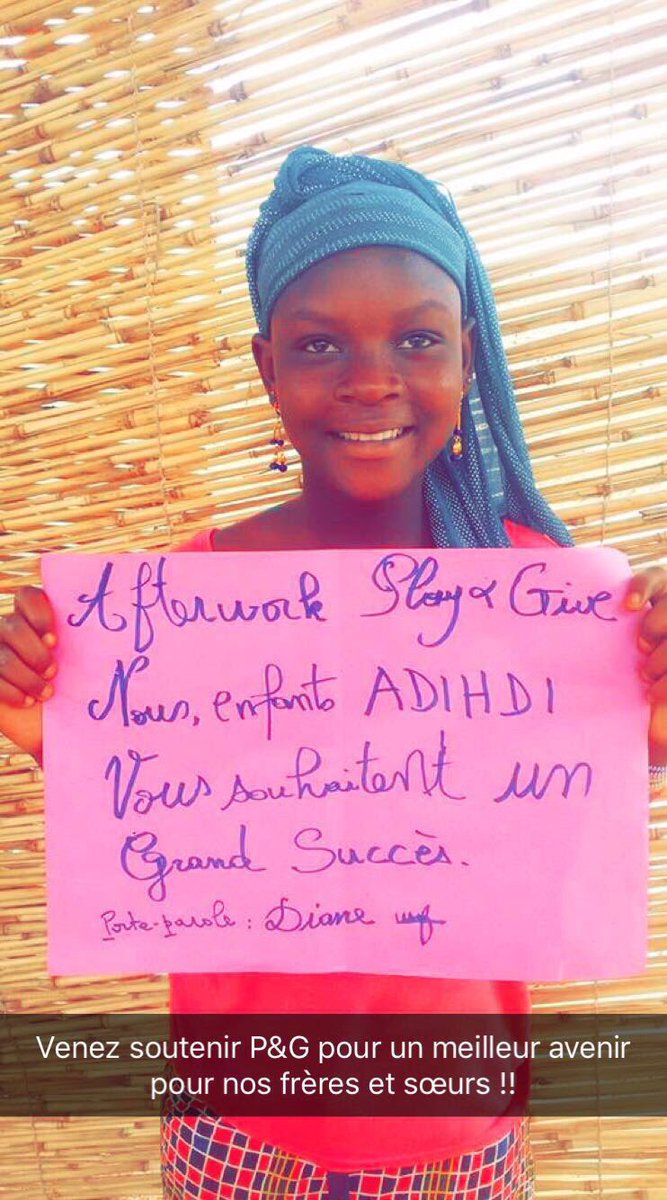 Afterwork Play & Give
Nous, enfants ADIHDI
Vous souhaitent un
Grand Succès.
Porte-parole : Diane
Venez soutenir P&G pour un meilleur avenir
pour nos frères et sœurs !!